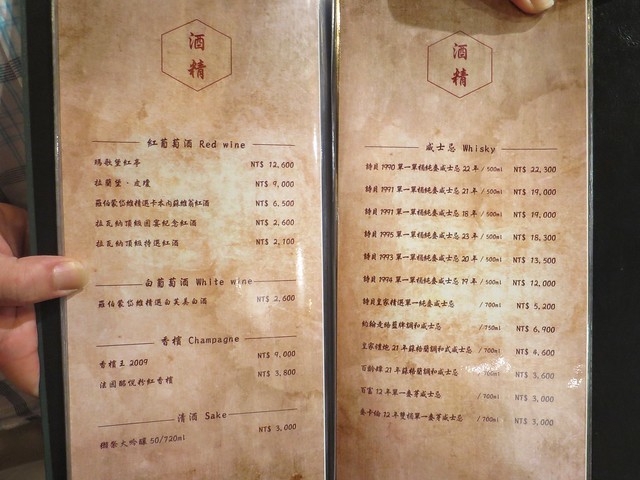 酒
精
紅葡萄酒 Red wine
瑪歌堡紅亭 NT$ 12,600
拉蘭堡、皮瓊 NT$ 9,000
羅伯蒙岱維精選卡本內蘇維翁紅酒 NT$ 6,500
拉瓦納頂級國宴紀念紅酒 NT$ 2,600
拉瓦納頂級特選紅酒 NT$ 2,100
白葡萄酒 White wine
羅伯蒙岱維精選白芙美白酒 NT$ 2,600
香檳 Champagne
香檳王 2009 NT$ 9,000
法國酩悅粉紅香檳 NT$ 3,800
清酒 Sake
獺祭大吟釀 50/720ml NT$ 3,000
酒
精
威士忌 Whisky
詩貝 1990 單一單桶純麥威士忌 22 年 /500ml NT$ 22,300
詩貝 1991 單一單桶純麥威士忌 21 年 /500ml NT$ 19,000
詩貝 1991 單一單桶純麥威士忌 18 年 /500ml NT$ 19,000
詩貝 1995 單一單桶純麥威士忌 23 年 /500ml NT$ 18,300
詩貝 1993 單一單桶純麥威士忌 20 年 /500ml NT$ 13,500
詩貝 1994 單一單桶純麥威士忌 19 年 /500ml NT$ 12,000
詩貝皇家精選單一純麥威士忌 /700ml NT$ 5,200
約翰走路藍牌調和威士忌 /750ml NT$ 6,900
皇家禮炮 21 年蘇格蘭調和式威士忌 /700ml NT$ 4,600
百齡罈 21 年蘇格蘭調和威士忌 /700ml NT$ 3,600
百富 12 年單一麥芽威士忌 /700ml NT$ 3,000
麥卡倫 12 年雙桶單一麥芽威士忌 /700ml NT$ 3,000